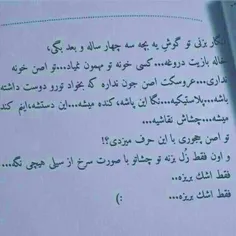 انگار بزنی تو گوش یه بچه سه چهار ساله و بعد بگی،
خاله بازیت دروغه...کسی خونه تو مهمون نمیاد...تو اصن خونه
نداری...عروسکت اصن جون نداره که بخواد تورو دوست داشته
باشه...پلاستیکیه...نگا این پاشه،کنده میشه...این دستشه،اینم کنده
میشه...چشاش نقاشیه...
تو اصن بجوری با این حرف میزدی؟!
و اون فقط زُل بزنه تو چشاتو با صورت سرخ از سیلی هیچی نگه...
فقط اشک بریزه..
فقط اشک بریزه... :)